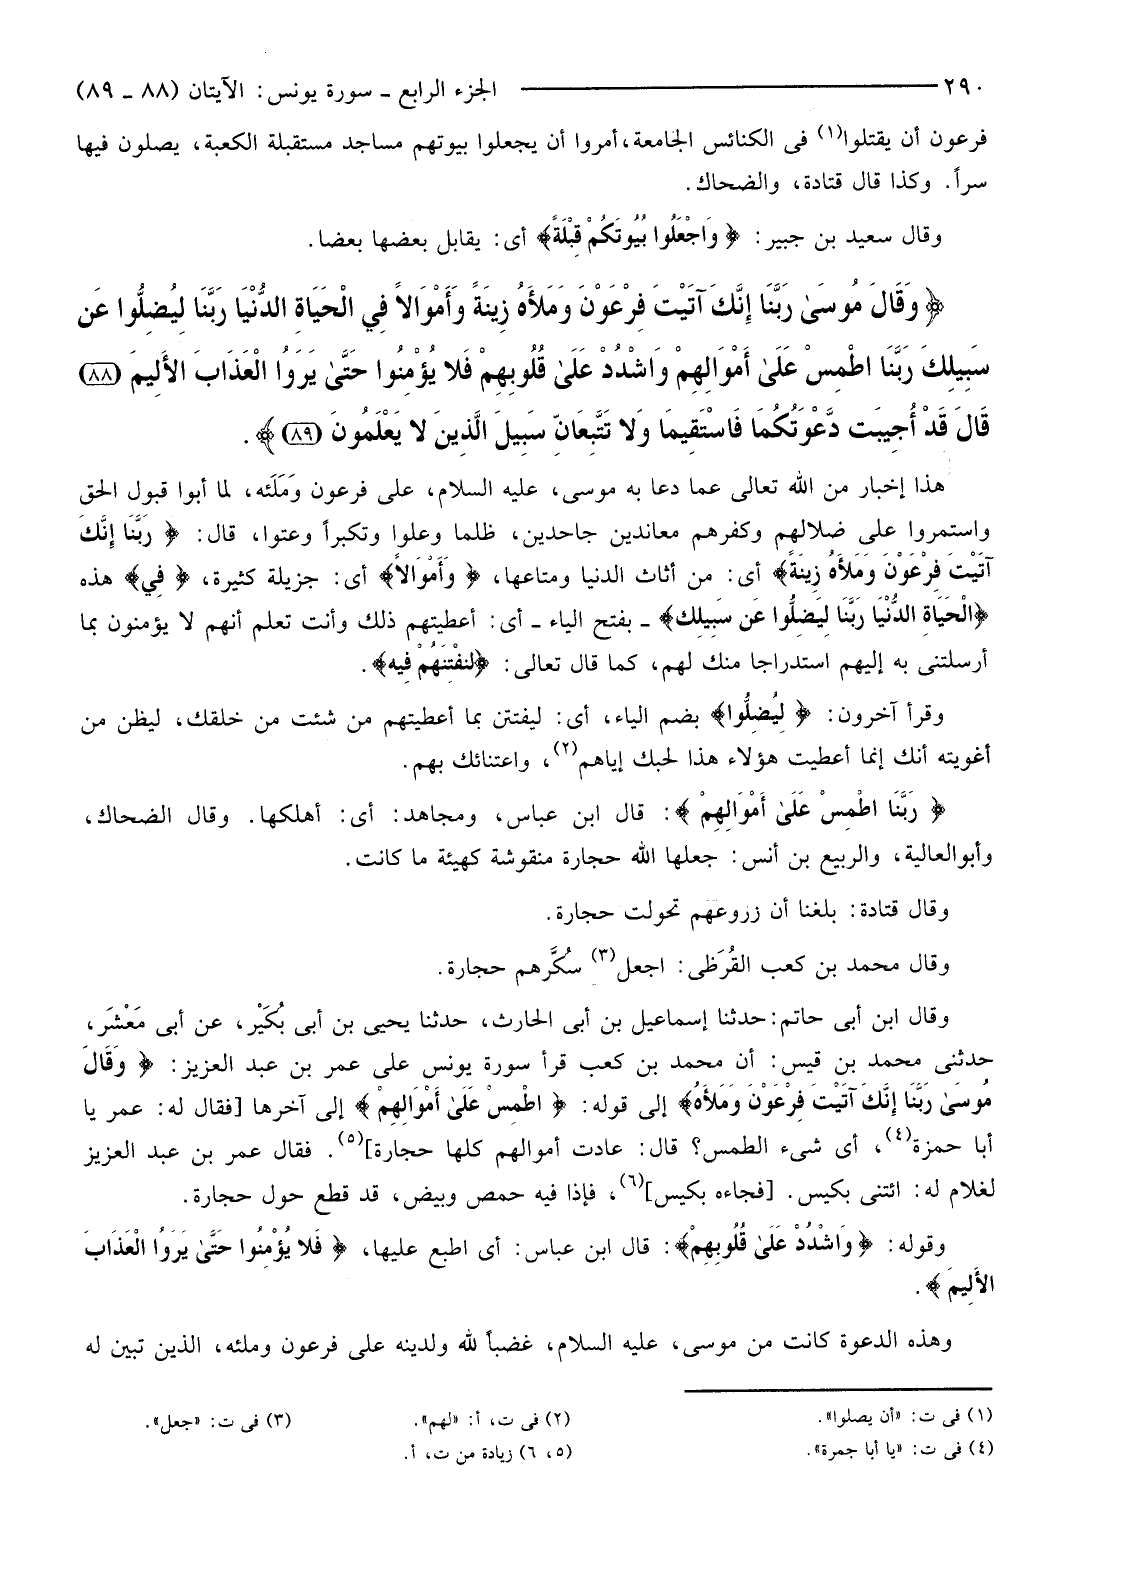 ٢٩٠ الجزء الرابع ـ سورة يونس: الآيتان (٨٨ ـ ٨٩)
فرعون أن يقتلوا(١) فى الكنائس الجامعة،أمروا أن يجعلوا بيوتهم مساجد مستقبلة الكعبة، يصلون فيها
سراً. وكذا قال قتادة، والضحاك.
وقال سعيد بن جبير: ﴿ وَاجْعَلُوا بُيُوتَكُمْ قِبْلَةً﴾ أى: يقابل بعضها بعضا.
﴿ وَقَالَ مُوسَىٰ رَبَّنَا إِنَّكَ آتَيْتَ فِرْعَوْنَ وَمَلأَهُ زِينَةً وَأَمْوَالاً فِي الْحَيَاةِ الدُّنْيَا رَبَّنَا لِيُضِلُّوا عَن
سَبِيلِكَ رَبَّنَا اطْمِسْ عَلَىٰ أَمْوَالِهِمْ وَاشْدُدْ عَلَىٰ قُلُوبِهِمْ فَلا يُؤْمِنُوا حَتَّىٰ يَرَوُا الْعَذَابَ الأَلِيمَ (٨٨)
قَالَ قَدْ أُجِيبَت دَّعْوَتُكُمَا فَاسْتَقِيمَا وَلا تَتَّبِعَانِّ سَبِيلَ الَّذِينَ لا يَعْلَمُونَ (٨٩) ﴾.
هذا إخبار من الله تعالى عما دعا به موسى، عليه السلام، على فرعون وَمَلَئه، لما أبوا قبول الحق
واستمروا على ضلالهم وكفرهم معاندين جاحدين، ظلما وعلوا وتكبراً وعتوا، قال: ﴿ رَبَّنَا إِنَّكَ
آتَيْتَ فِرْعَوْنَ وَمَلأَهُ زِينَةً﴾ أى: من أثاث الدنيا ومتاعها، ﴿ وَأَمْوَالاً﴾ أى: جزيلة كثيرة، ﴿ فِي﴾ هذه
﴿الْحَيَاةِ الدُّنْيَا رَبَّنَا لِيَضِلُّوا عَن سَبِيلِكَ﴾ ـ بفتح الياء ـ أى: أعطيتهم ذلك وأنت تعلم أنهم لا يؤمنون بما
أرسلتنى به إليهم استدراجا منك لهم، كما قال تعالى: ﴿لِنَفْتِنَهُمْ فِيهِ﴾.
وقرأ آخرون: ﴿ لِيُضِلُّوا﴾ بضم الياء، أى: ليفتتن بما أعطيتهم من شئت من خلقك، ليظن من
أغويته أنك إنما أعطيت هؤلاء هذا لحبك إياهم(٢)، واعتنائك بهم.
﴿ رَبَّنَا اطْمِسْ عَلَىٰ أَمْوَالِهِمْ ﴾: قال ابن عباس، ومجاهد: أى: أهلكها. وقال الضحاك،
وأبوالعالية، والربيع بن أنس: جعلها الله حجارة منقوشة كهيئة ما كانت.
وقال قتادة: بلغنا أن زروعهم تحولت حجارة.
وقال محمد بن كعب القُرَظى: اجعل(٣) سُكَّرهم حجارة.
وقال ابن أبى حاتم:حدثنا إسماعيل بن أبى الحارث، حدثنا يحيى بن أبى بُكَيْر، عن أبى مَعْشَر،
حدثنى محمد بن قيس: أن محمد بن كعب قرأ سورة يونس على عمر بن عبد العزيز: ﴿ وَقَالَ
مُوسَىٰ رَبَّنَا إِنَّكَ آتَيْتَ فِرْعَوْنَ وَمَلأَهُ﴾ إلى قوله: ﴿ اطْمِسْ عَلَىٰ أَمْوَالِهِمْ ﴾ إلى آخرها [فقال له: عمر يا
أبا حمزة(٤)، أى شىء الطمس؟ قال: عادت أموالهم كلها حجارة](٥). فقال عمر بن عبد العزيز
لغلام له: ائتنى بكيس. [فجاءه بكيس](٦)، فإذا فيه حمص وبيض، قد قطع حول حجارة.
وقوله: ﴿ وَاشْدُدْ عَلَىٰ قُلُوبِهِمْ﴾: قال ابن عباس: أى اطبع عليها، ﴿ فَلا يُؤْمِنُوا حَتَّىٰ يَرَوُا الْعَذَابَ
الأَلِيمَ ﴾.
وهذه الدعوة كانت من موسى، عليه السلام، غضباً لله ولدينه على فرعون وملئه، الذين تبين له
(١) فى ت: «أن يصلوا». (٢) فى ت، أ: «لهم». (٣) فى ت: «جعل».
(٤) فى ت: «يا أبا جمرة». (٥، ٦) زيادة من ت، أ.